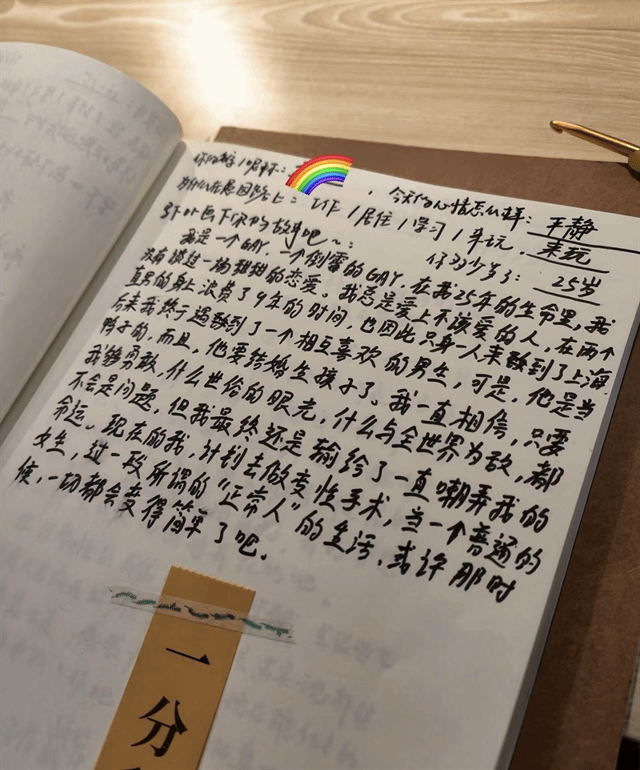 你的名字/昵称： ，今天的心情怎么样：平静
为什么在愚园路上：工作/居住/学习/来玩，来玩
写下/画下你的故事吧~： 你多少岁了：25岁
我是一个GAY，一个倒霉的GAY，在我25年的生命里，我
没有谈过一场甜甜的恋爱。我总是爱上不该爱的人，在两个
直男的身上浪费了9年的时间，也因此只身一人来到了上海
后来我终于遇到了一个相互喜欢的男生，可是，他是当
鸭子的，而且，他要结婚生孩子了。我一直相信，只要
我够勇敢，什么世俗的眼光，什么与全世界为敌，都
不会是问题，但我最终还是输给了一直嘲弄我的
命运。现在的我，计划去做变性手术，当一个普通的
女生，过一段所谓的“正常人”的生活，或许那时
候，一切都会变得简单了吧。
一分